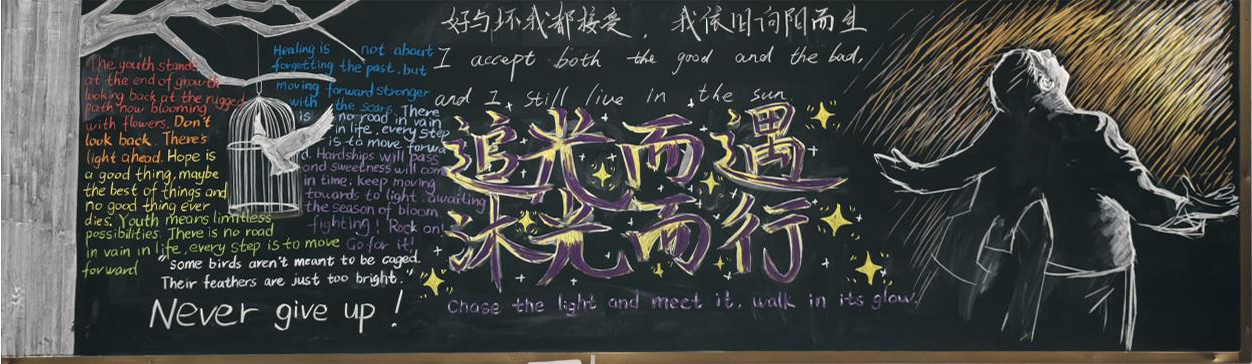 好与坏我都接受，我依旧向阳而生
I accept both the good and the bad,
and I still live in the sun
追光而遇
沐光而行
Chase the light and meet it, walk in its glow.
The youth stands
at the end of growth
looking back at the rugged
path now blooming
with flowers. Don't
look back. There's
light ahead. Hope is
a good thing, maybe
the best of things and
no good thing ever
dies. Youth means limitless
possibilities. There is no road
in vain in life, every step is to move
forward
Healing is not about
forgetting the past, but
moving forward stronger
with the scars. There
is no road in vain
in life, every step
is to move forwa
d. Hardships will pass
and sweetness will com
in time; keep moving
towards to light. awaiting
the season of bloom.
fighting! Rock on!
Go for it!
"Some birds aren't meant to be caged.
Their feathers are just too bright."
Never give up!